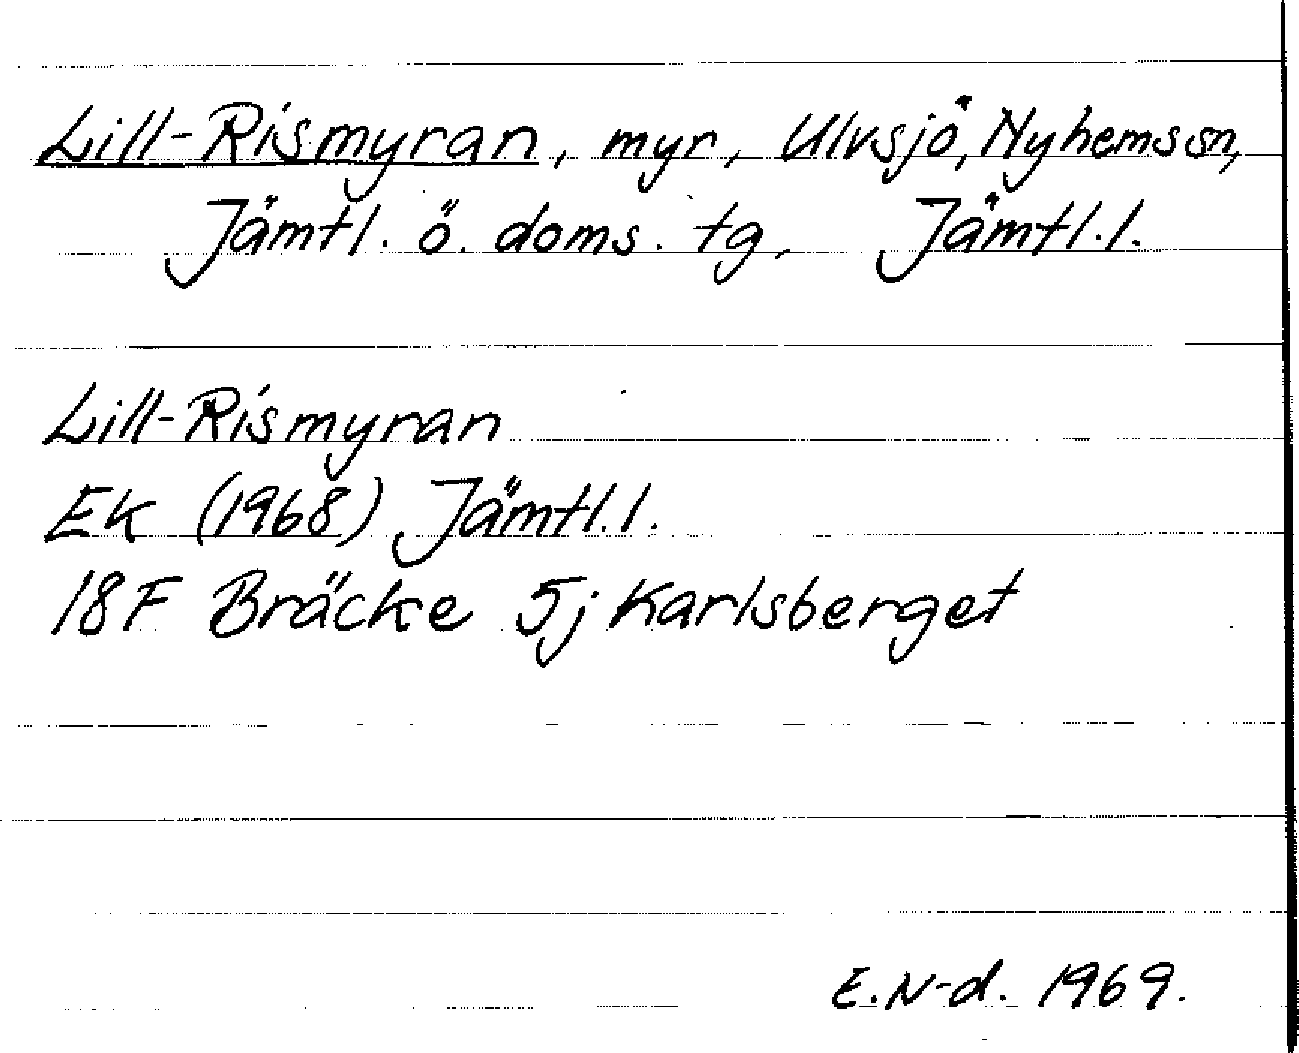 Lill-Rismyran, myr, Ulvsjö, Nyhems sn,
Jämtl. ö. doms. tg, Jämtl. l.
Lill-Rismyran
EK (1968) Jämtl. l.
18F Bräcke 5j Karlsberget
E.N-d. 1969.